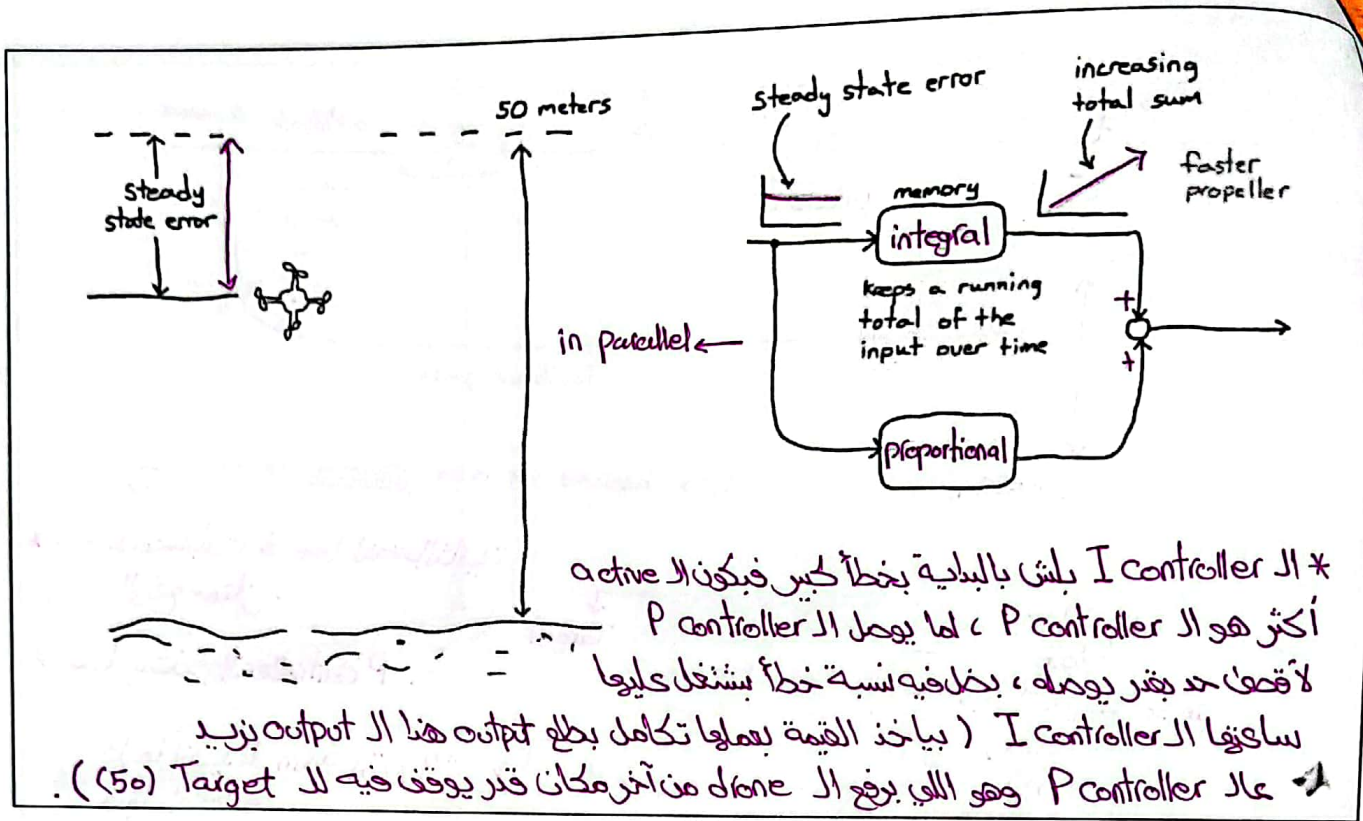 50 meters
steady
state error
steady state error
increasing
total sum
faster
propeller
memory
integral
keeps a running
total of the
input over time
in parallel
+
+
proportional
* الـ I controller بلش بالبداية بخطأ كبير فبكون الـ active
أكثر هو الـ P controller ، لما يوصل الـ P controller
لأقصى حد بقدر يوصله ، بضل فيه نسبة خطأ بشتغل عليها
ساعتها الـ I controller ( بياخذ القيمة بعملها تكامل بطلع output هذا الـ output بزيد
عالـ P controller وهو اللي برفع الـ drone من آخر مكان قدر يوقف فيه للـ Target (50)).